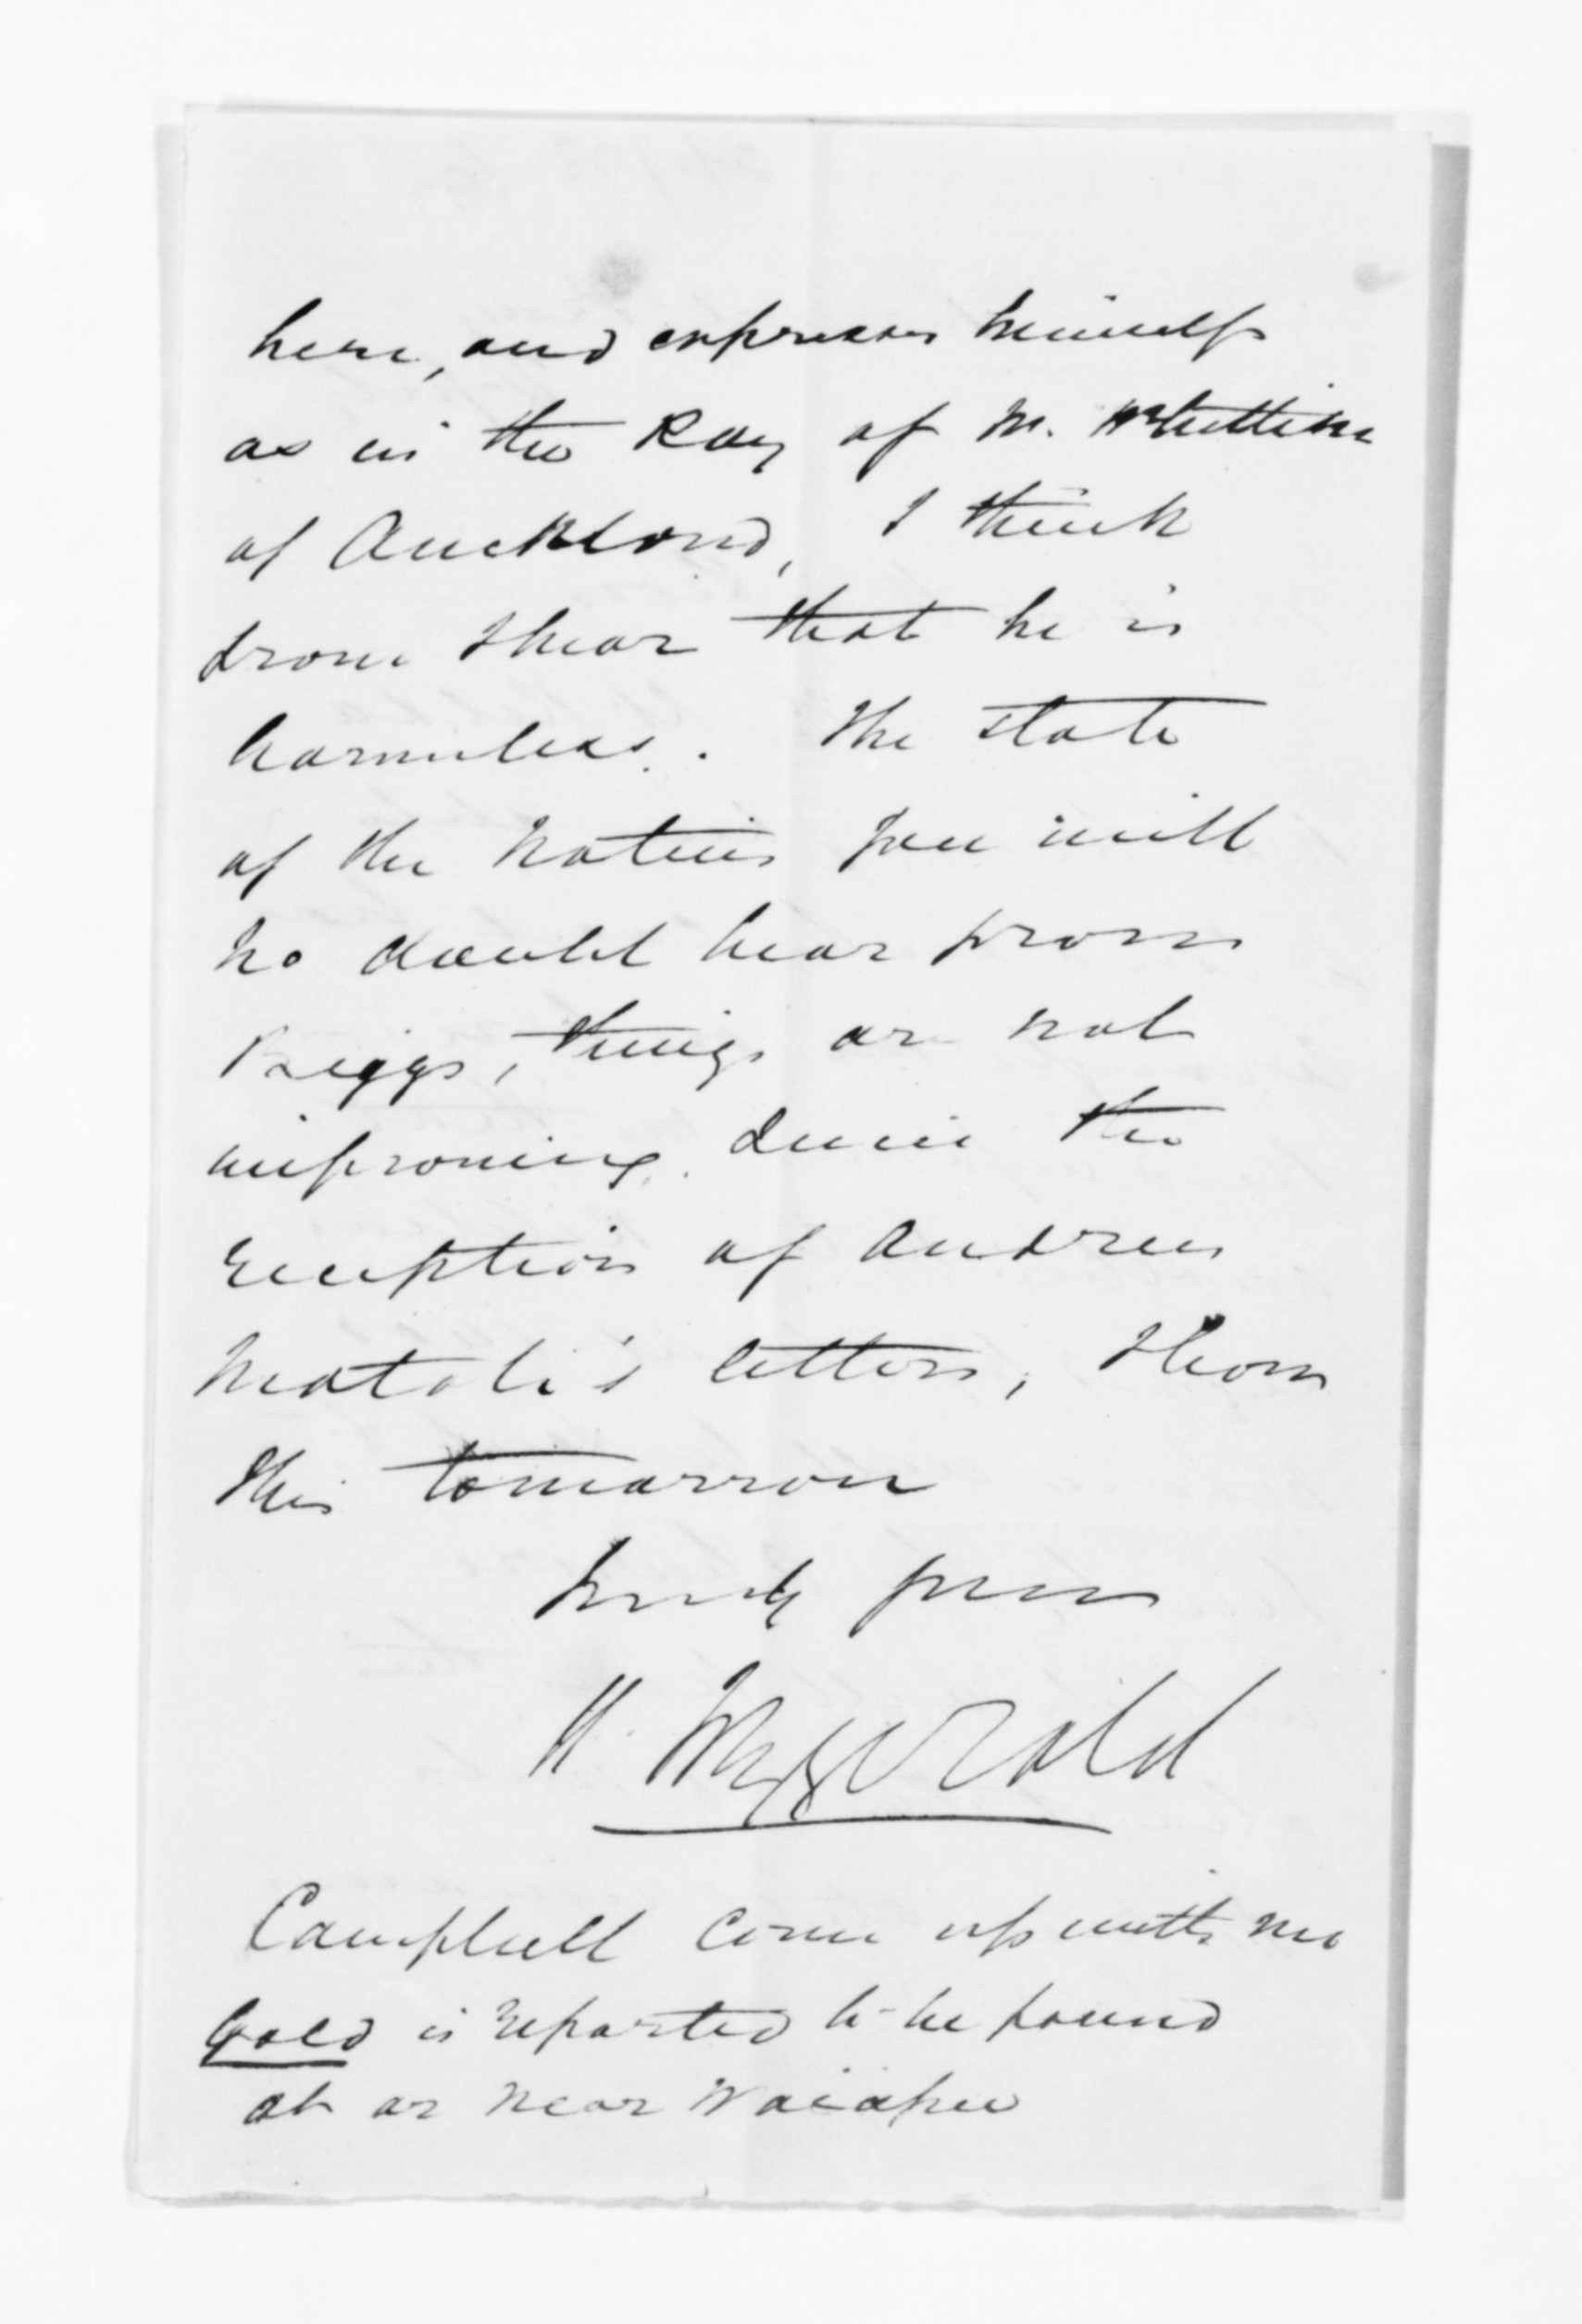 here, and expresses himself
as in the Pay of Mr. Whittaker
of Auckland, I think
from I hear that he is
harmless. The state
of the Natives you will
no doubt hear from
Biggs, things are not
improving. since the
reception of Andrew
letters, I leave
this tomorrow
Truly yours
Campbell came up with me
Gold is reported to be found
at or near Waiapu